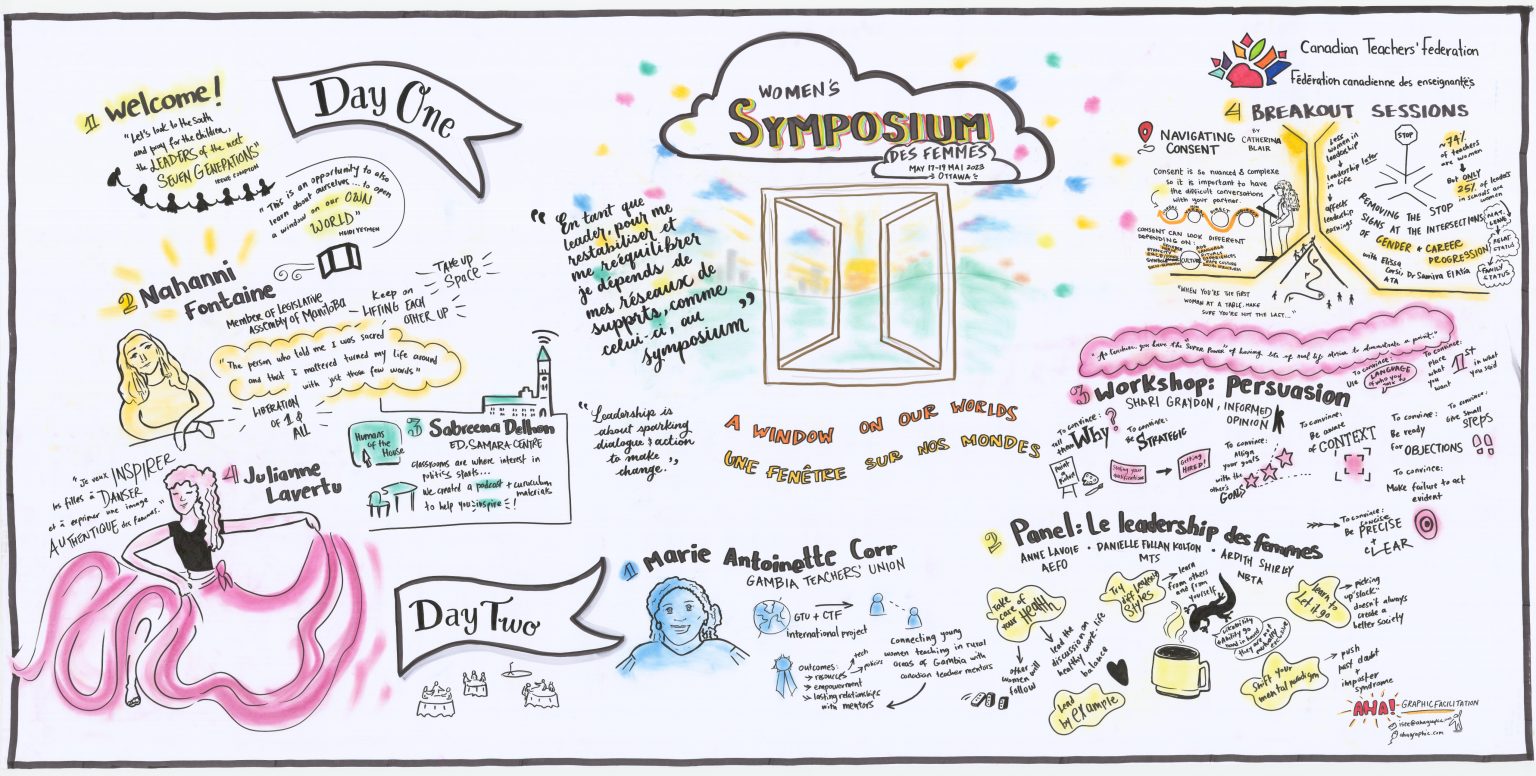 Day One
1 Welcome!
"Let's look to the South
and pray for the children,
the LEADERS of the next
SEVEN GENERATIONS"
IRENE COMPTON
"This is an opportunity to also
learn about ourselves... to open
a window on our OWN
WORLD"
HEIDI YETMEN
2 Nahanni
Fontaine
MEMBER OF LEGISLATIVE
ASSEMBLY OF MANITOBA
Keep on
LIFTING EACH
OTHER UP
TAKE UP
SPACE
"The person who told me I was sacred
and that I mattered turned my life around
with just those few words"
LIBERATION
OF 1 &
ALL
3 Sabreena Delhon
ED, SAMARA CENTRE
Humans
of the
House
classrooms are where interest in
politics starts...
We created a podcast + curriculum
materials
to help you inspire!
4 Julianne
Lavertu
"Je veux INSPIRER
les filles à DANSER
et à exprimer une image
AUTHENTIQUE des femmes."
WOMEN'S
SYMPOSIUM
DES FEMMES
MAY 17-19 MAI 2023
OTTAWA
"En tant que
leader, pour me
restabiliser et
me rééquilibrer
je dépends de
mes réseaux de
supports, comme
celui-ci, au
symposium"
"Leadership is
about sparking
dialogue & action
to make
change."
A WINDOW ON OUR WORLDS
UNE FENÊTRE SUR NOS MONDES
Day Two
1 Marie Antoinette Corr
GAMBIA TEACHERS' UNION
GTU + CTF
International project
Connecting young
women teaching in rural
areas of Gambia with
canadian teacher mentors
outcomes:
tech
policies
resources
empowerment
lasting relationships
with mentors
2 Panel: Le leadership des femmes
ANNE LAVOIE
AEFO
DANIELLE FULLAN KOLTON
MTS
ARDITH SHIRLEY
NBTA
Take
care of
your Health
other
women will
follow
lead the
discussion on
healthy work-life
balance
Lead
by example
Try
diff leadership
styles
learn
from others
and from
yourself
likeability
& Ability go
hand in hand
they are not
mutually
exclusive
Learn to
Let it go
picking
up "slack"
doesn't always
create a
better society
Shift your
mental paradigm
push
past doubt
+
imposter
syndrome
3 Workshop: Persuasion
SHARI GRAYDON, INFORMED
OPINION
"As teachers, you have the "SUPER POWER" of having lots of real life stories to demonstrate a point."
To convince:
tell
them Why?
Paint
a picture
To convince:
Be STRATEGIC
Getting
HIRED!
To convince:
Align
your goals
with the
other's
GOALS
To convince:
Be aware
of CONTEXT
To convince:
Use LANGUAGE
of who you
talk to
To convince:
place
what
you
want
1st
in what
you said
To convince:
Be ready
for OBJECTIONS
To convince:
Give small
STEPS
To convince:
Make failure to act
evident
To convince:
concise
Be PRECISE
+
CLEAR
Canadian Teachers' Federation
Fédération canadienne des enseignant·e·s
4 BREAKOUT SESSIONS
NAVIGATING
CONSENT
BY
CATHERINA
BLAIR
Consent is so nuanced & complexe
so it is important to have
the difficult conversations
with your partner.
CONSENT CAN LOOK DIFFERENT
DEPENDING ON:
CULTURE
Less
women in
leadership
leadership later
in life
affects
leadership
earnings
STOP
~74%
of teachers
are women
But ONLY
25% of leaders
in schools are
women
REMOVING THE STOP
SIGNS AT THE INTERSECTIONS
OF GENDER & CAREER
PROGRESSION
with Elissa
Corsi, Dr Samira ElAtia
ATA
MAT.
LEAVE
RELAT.
STATUS
FAMILY
STATUS
"WHEN YOU'RE THE FIRST
WOMAN AT A TABLE, MAKE
SURE YOU'RE NOT THE LAST..."
AHA! GRAPHIC FACILITATION
ahagraphic.com